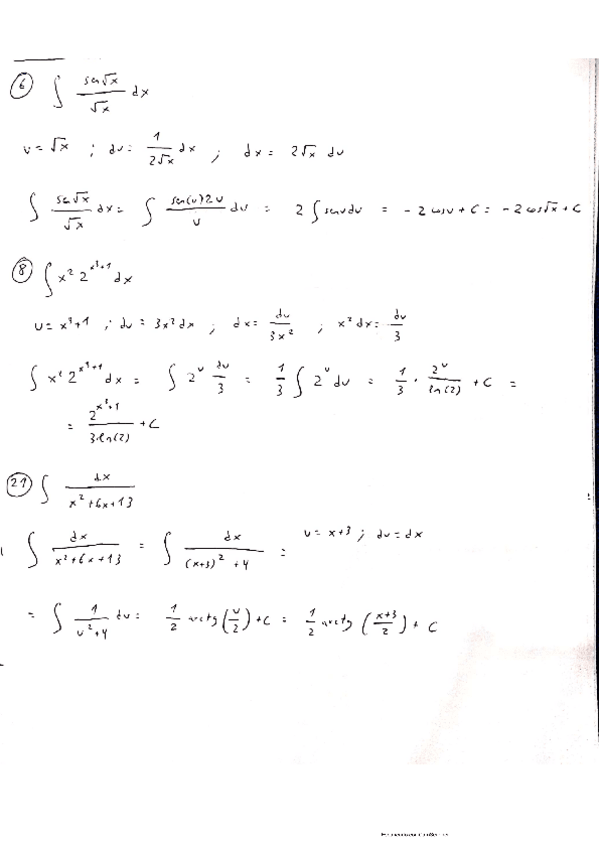 6 ∫ sen√x / √x dx
u = √x ; du = 1 / 2√x dx ; dx = 2√x du
∫ sen√x / √x dx = ∫ sen(u) 2u / u du = 2 ∫ sen u du = - 2 cos u + C = - 2 cos√x + C
8 ∫ x² 2^(x³+1) dx
u = x³+1 ; du = 3x² dx ; dx = du / 3x² ; x² dx = du / 3
∫ x² 2^(x³+1) dx = ∫ 2^u du / 3 = 1/3 ∫ 2^u du = 1/3 · 2^u / ln(2) + C =
= 2^(x³+1) / 3·ln(2) + C
21 ∫ dx / x²+6x+13
∫ dx / x²+6x+13 = ∫ dx / (x+3)² +4 = u = x+3 ; du = dx
= ∫ 1 / u²+4 du = 1/2 arctg (u/2) + C = 1/2 arctg (x+3 / 2) + C